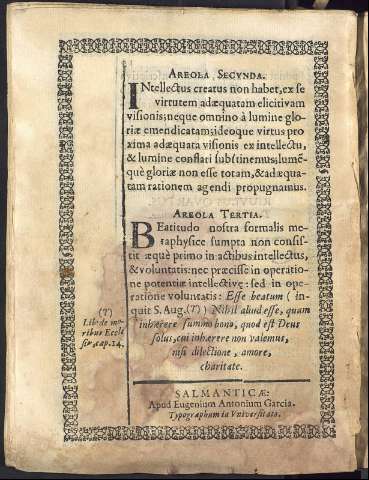 AREOLA SECVNDA.
INtellectus creatus non habet, ex se
virtutem adæquatam elicitivam
visionis; neque omnino à lumine glo-
riæ emendicatam; ideoque virtus pro
xima adæquata visionis ex intellectu,
& lumine conflari substinemus; lumē-
què gloriæ non esse totam, & adæqua-
tam rationem agendi propugnamus.
AREOLA TERTIA.
BEatitudo nostra formalis me-
taphysice sumpta non consis-
tit æquè primo in actibus intellectus,
& voluntatis: nec præcisse in operatio-
ne potentiæ intellectivę: sed in ope-
ratione voluntatis: Esse beatum (in-
quit S. Aug. (T)) Nihil aliud esse, quam
inhærere summo bono, quod est Deus
solus, cui inhærere non valemus,
nisi dilectione, amore,
charitate.
(T)
Lib. de mo-
ribus Eccle
siæ, cap. 14.
SALMANTICÆ:
Apud Eugenium Antonium Garcia.
Typographum in Vniversitate.